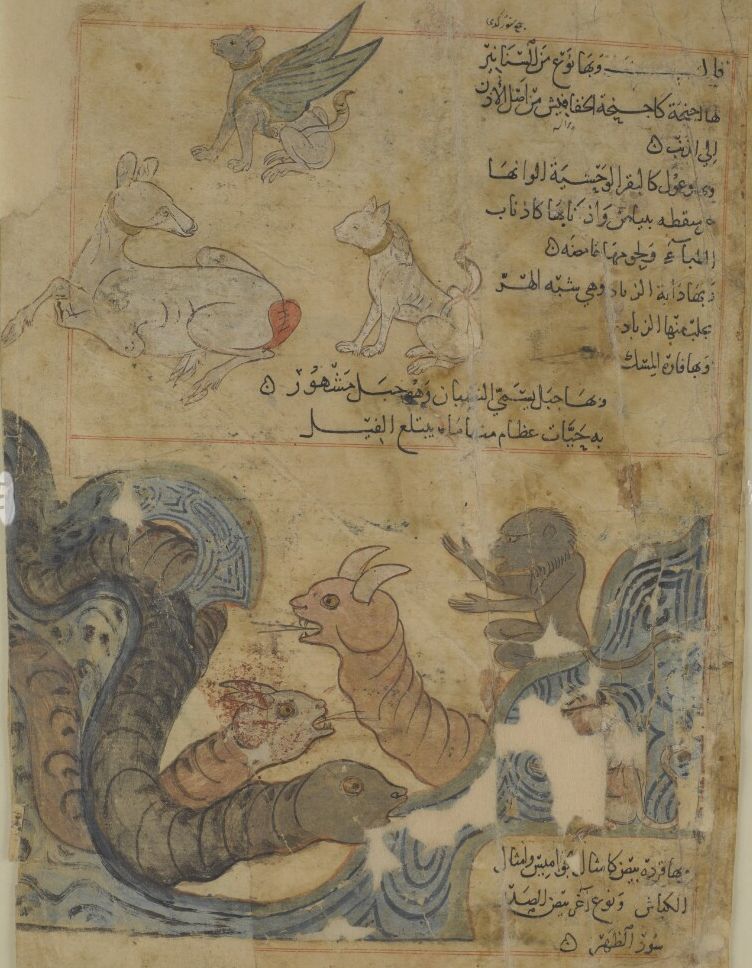 وبها نوع من السنانير
لها اجنحة كاجنحة الخفافيش من اصل الاذن
الى الذنب ه
وبها وعول كالبقر الوحشية الوانها
منقطه ببياض واذنابها كاذناب
الظباء ولحومها حامضه ه
وبها دابة الزباد وهي شبه الهر
يجلب منها الزباد
وبها فارة المسك
وبها جبل يسمى النصبان وهو جبل مشهور ه
به حيات عظام منها ما يبتلع الفيل
بها قردة بيض كامثال الجواميس وامثال
الكباش ونوع اخر بيض الصدر
سود الظهر ه